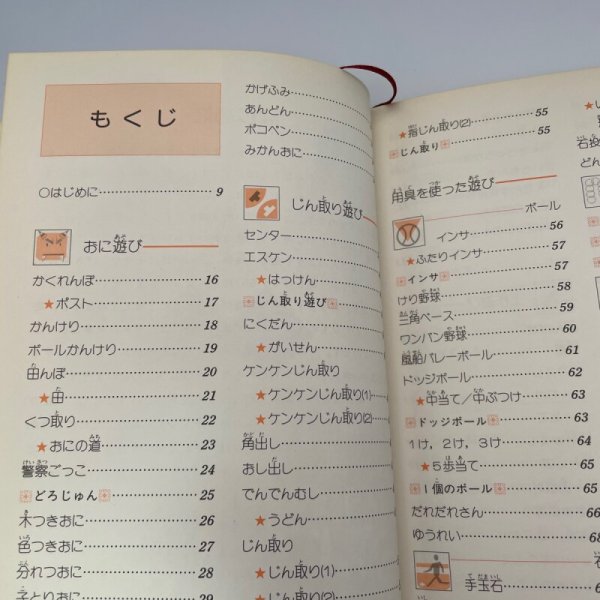 もくじ
○はじめに……9
おに遊び
かくれんぼ……16
★ポスト……17
かんけり……18
ボールかんけり……19
田んぼ……20
★田……21
くつ取り……22
★おにの道……23
警察ごっこ……24
どろじゅん……25
木つきおに……26
色つきおに……27
分れつおに……28
子とりおに……29
かげふみ
あんどん
ポコペン
みかんおに
じん取り遊び
センター
エスケン
★はっけん
じん取り遊び
にくだん
★がいせん
ケンケンじん取り
★ケンケンじん取り(1)
★ケンケンじん取り(2)
角出し
おし出し
でんでんむし
★うどん
じん取り
★じん取り(1)
★じん取り(2)
★指じん取り(2)……55
じん取り……55
用具を使った遊び
ボール
インサ……56
★ふたりインサ……57
インサ……57
けり野球……58
三角ベース……59
ワンバン野球……60
風船バレーボール……61
ドッジボール……62
★中当て／中ぶつけ……63
ドッジボール……63
1け，2け，3け……64
★5歩当て……65
1個のボール……65
だれだれさん……66
ゆうれい……68
手玉石